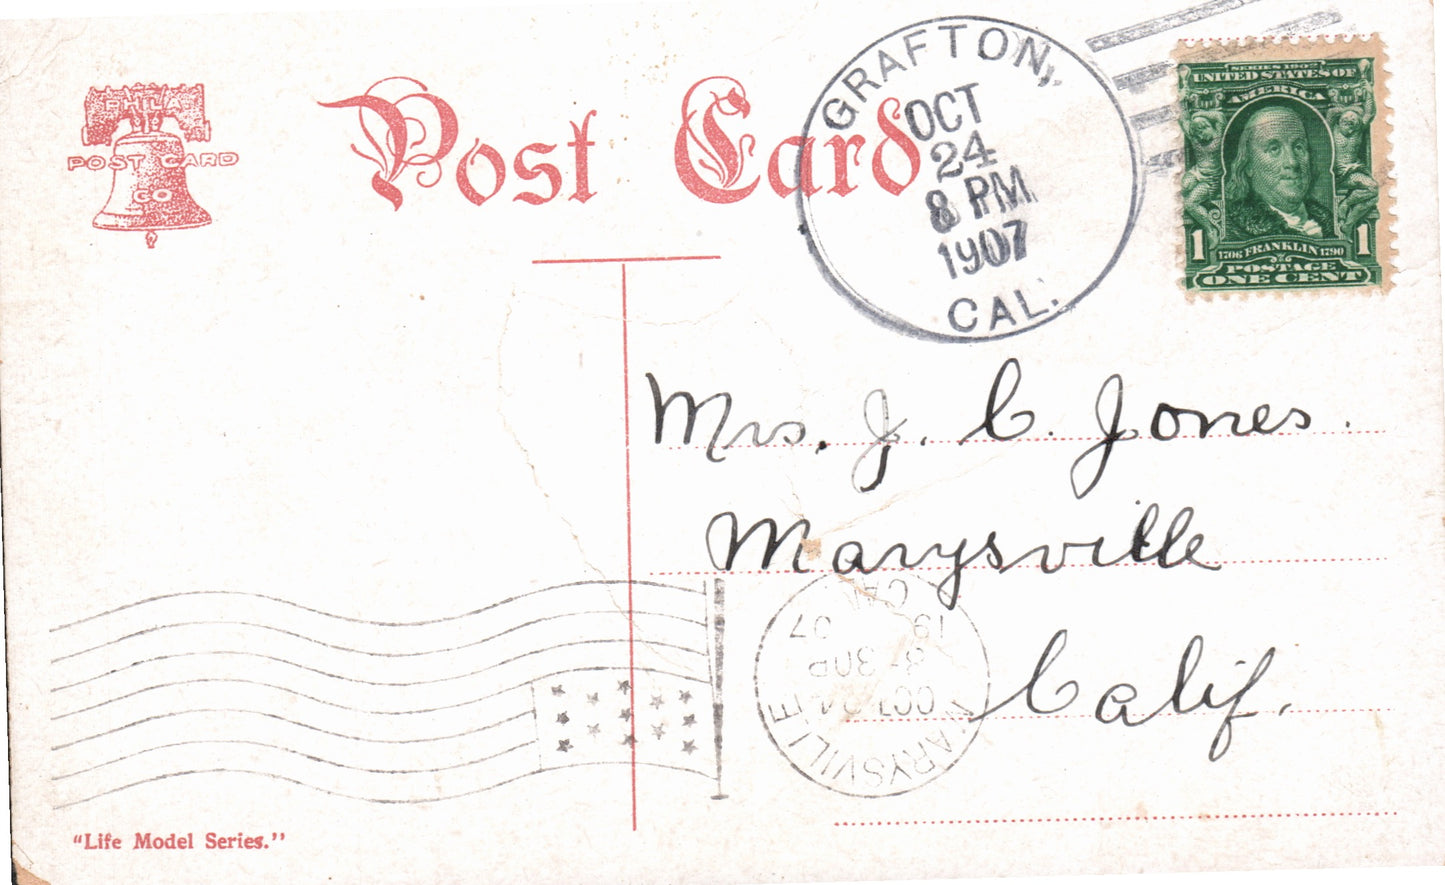 PHILA
POST CARD
CO
Post Card
GRAFTON,
OCT
24
8 PM
1907
CAL.
SERIES 1902
UNITED STATES OF
AMERICA
1 1
1706 FRANKLIN 1790
POSTAGE
ONE CENT
Mrs. J. C. Jones.
Marysville
Calif.
MARYSVILLE
OCT
3-30P
19 07
CAL
"Life Model Series."